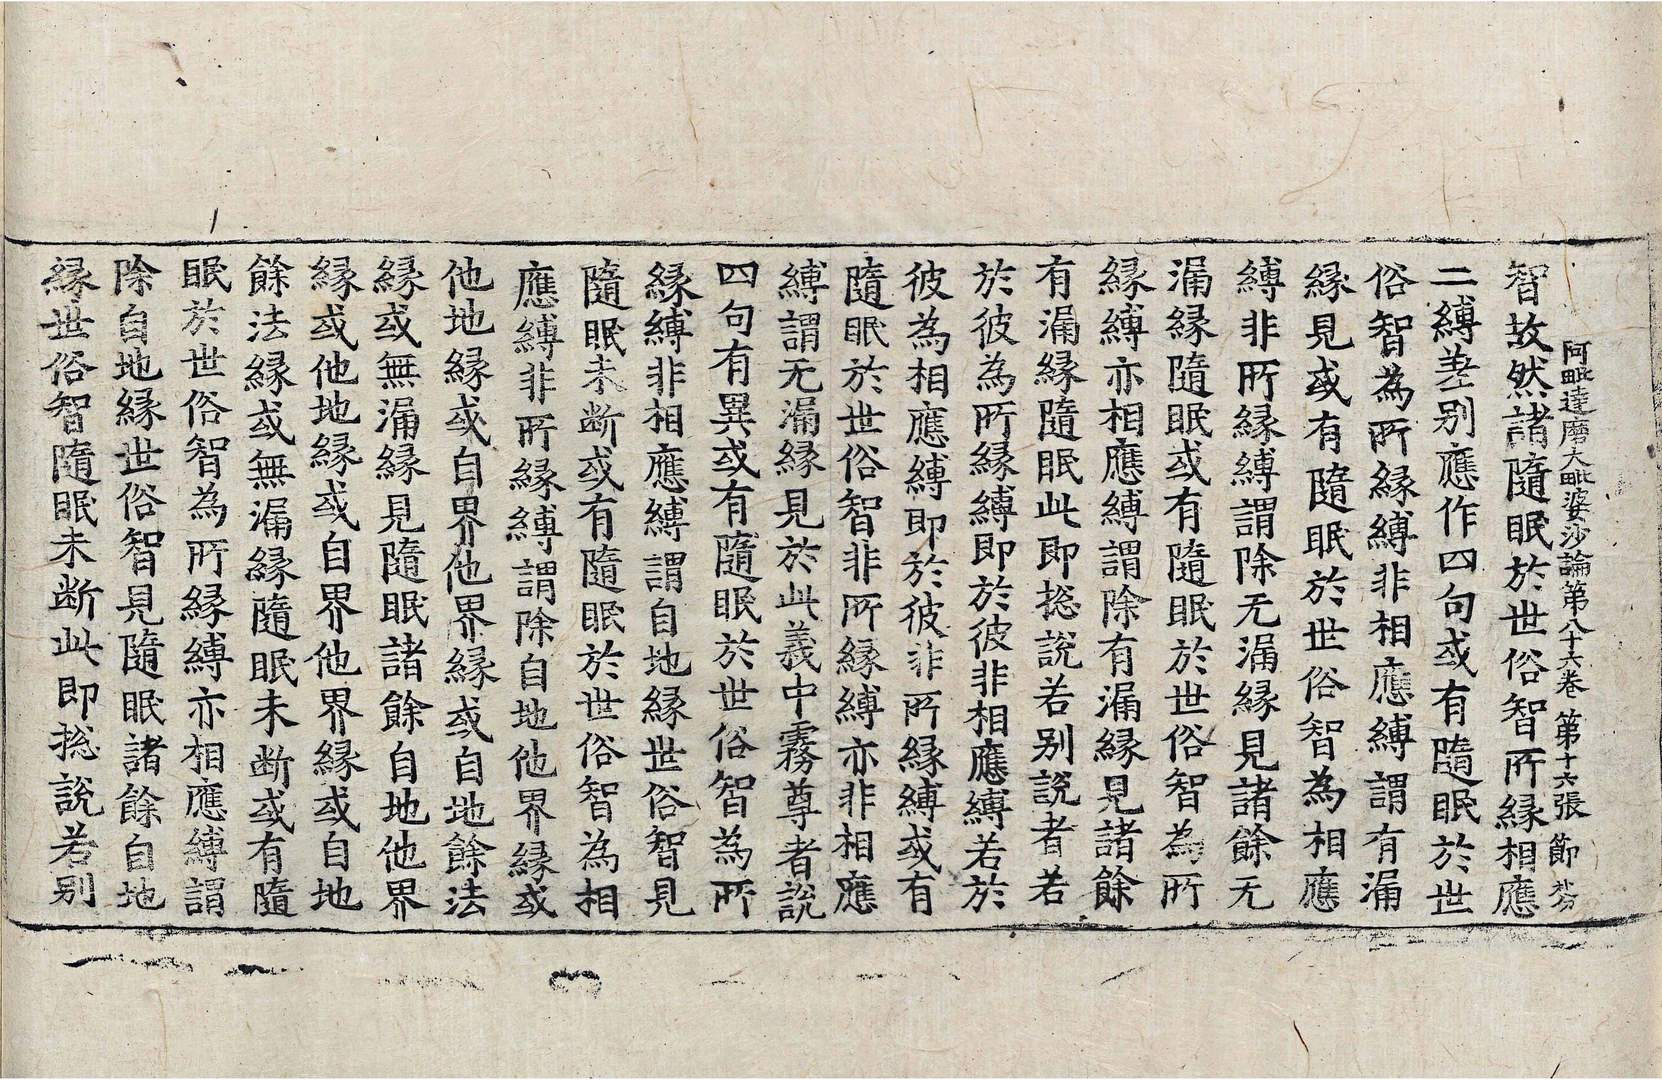 阿毗達磨大毗婆沙論第八十六卷　第十六張　節
智故然諸隨眠於世俗智所緣相應
二縛差別應作四句或有隨眠於世
俗智為所緣縛非相應縛謂有漏
緣見或有隨眠於世俗智為相應
縛非所緣縛謂除无漏緣見諸餘无
漏緣隨眠或有隨眠於世俗智為所
緣縛亦相應縛謂除有漏緣見諸餘
有漏緣隨眠此即捴說若別說者若
於彼為所緣縛即於彼非相應縛若於
彼為相應縛即於彼非所緣縛或有
隨眠於世俗智非所緣縛亦非相應
縛謂无漏緣見於此義中霧尊者說
四句有異或有隨眠於世俗智為所
緣縛非相應縛謂自地緣世俗智見
隨眠未断或有隨眠於世俗智為相
應縛非所緣縛謂除自地他界緣或
他地緣或自界他界緣或自地餘法
緣或無漏緣見隨眠諸餘自地他界
緣或他地緣或自界他界緣或自地
餘法緣或無漏緣隨眠未断或有隨
眠於世俗智為所緣縛亦相應縛謂
除自地緣世俗智見隨眠諸餘自地
緣世俗智隨眠未断此即捴說若別